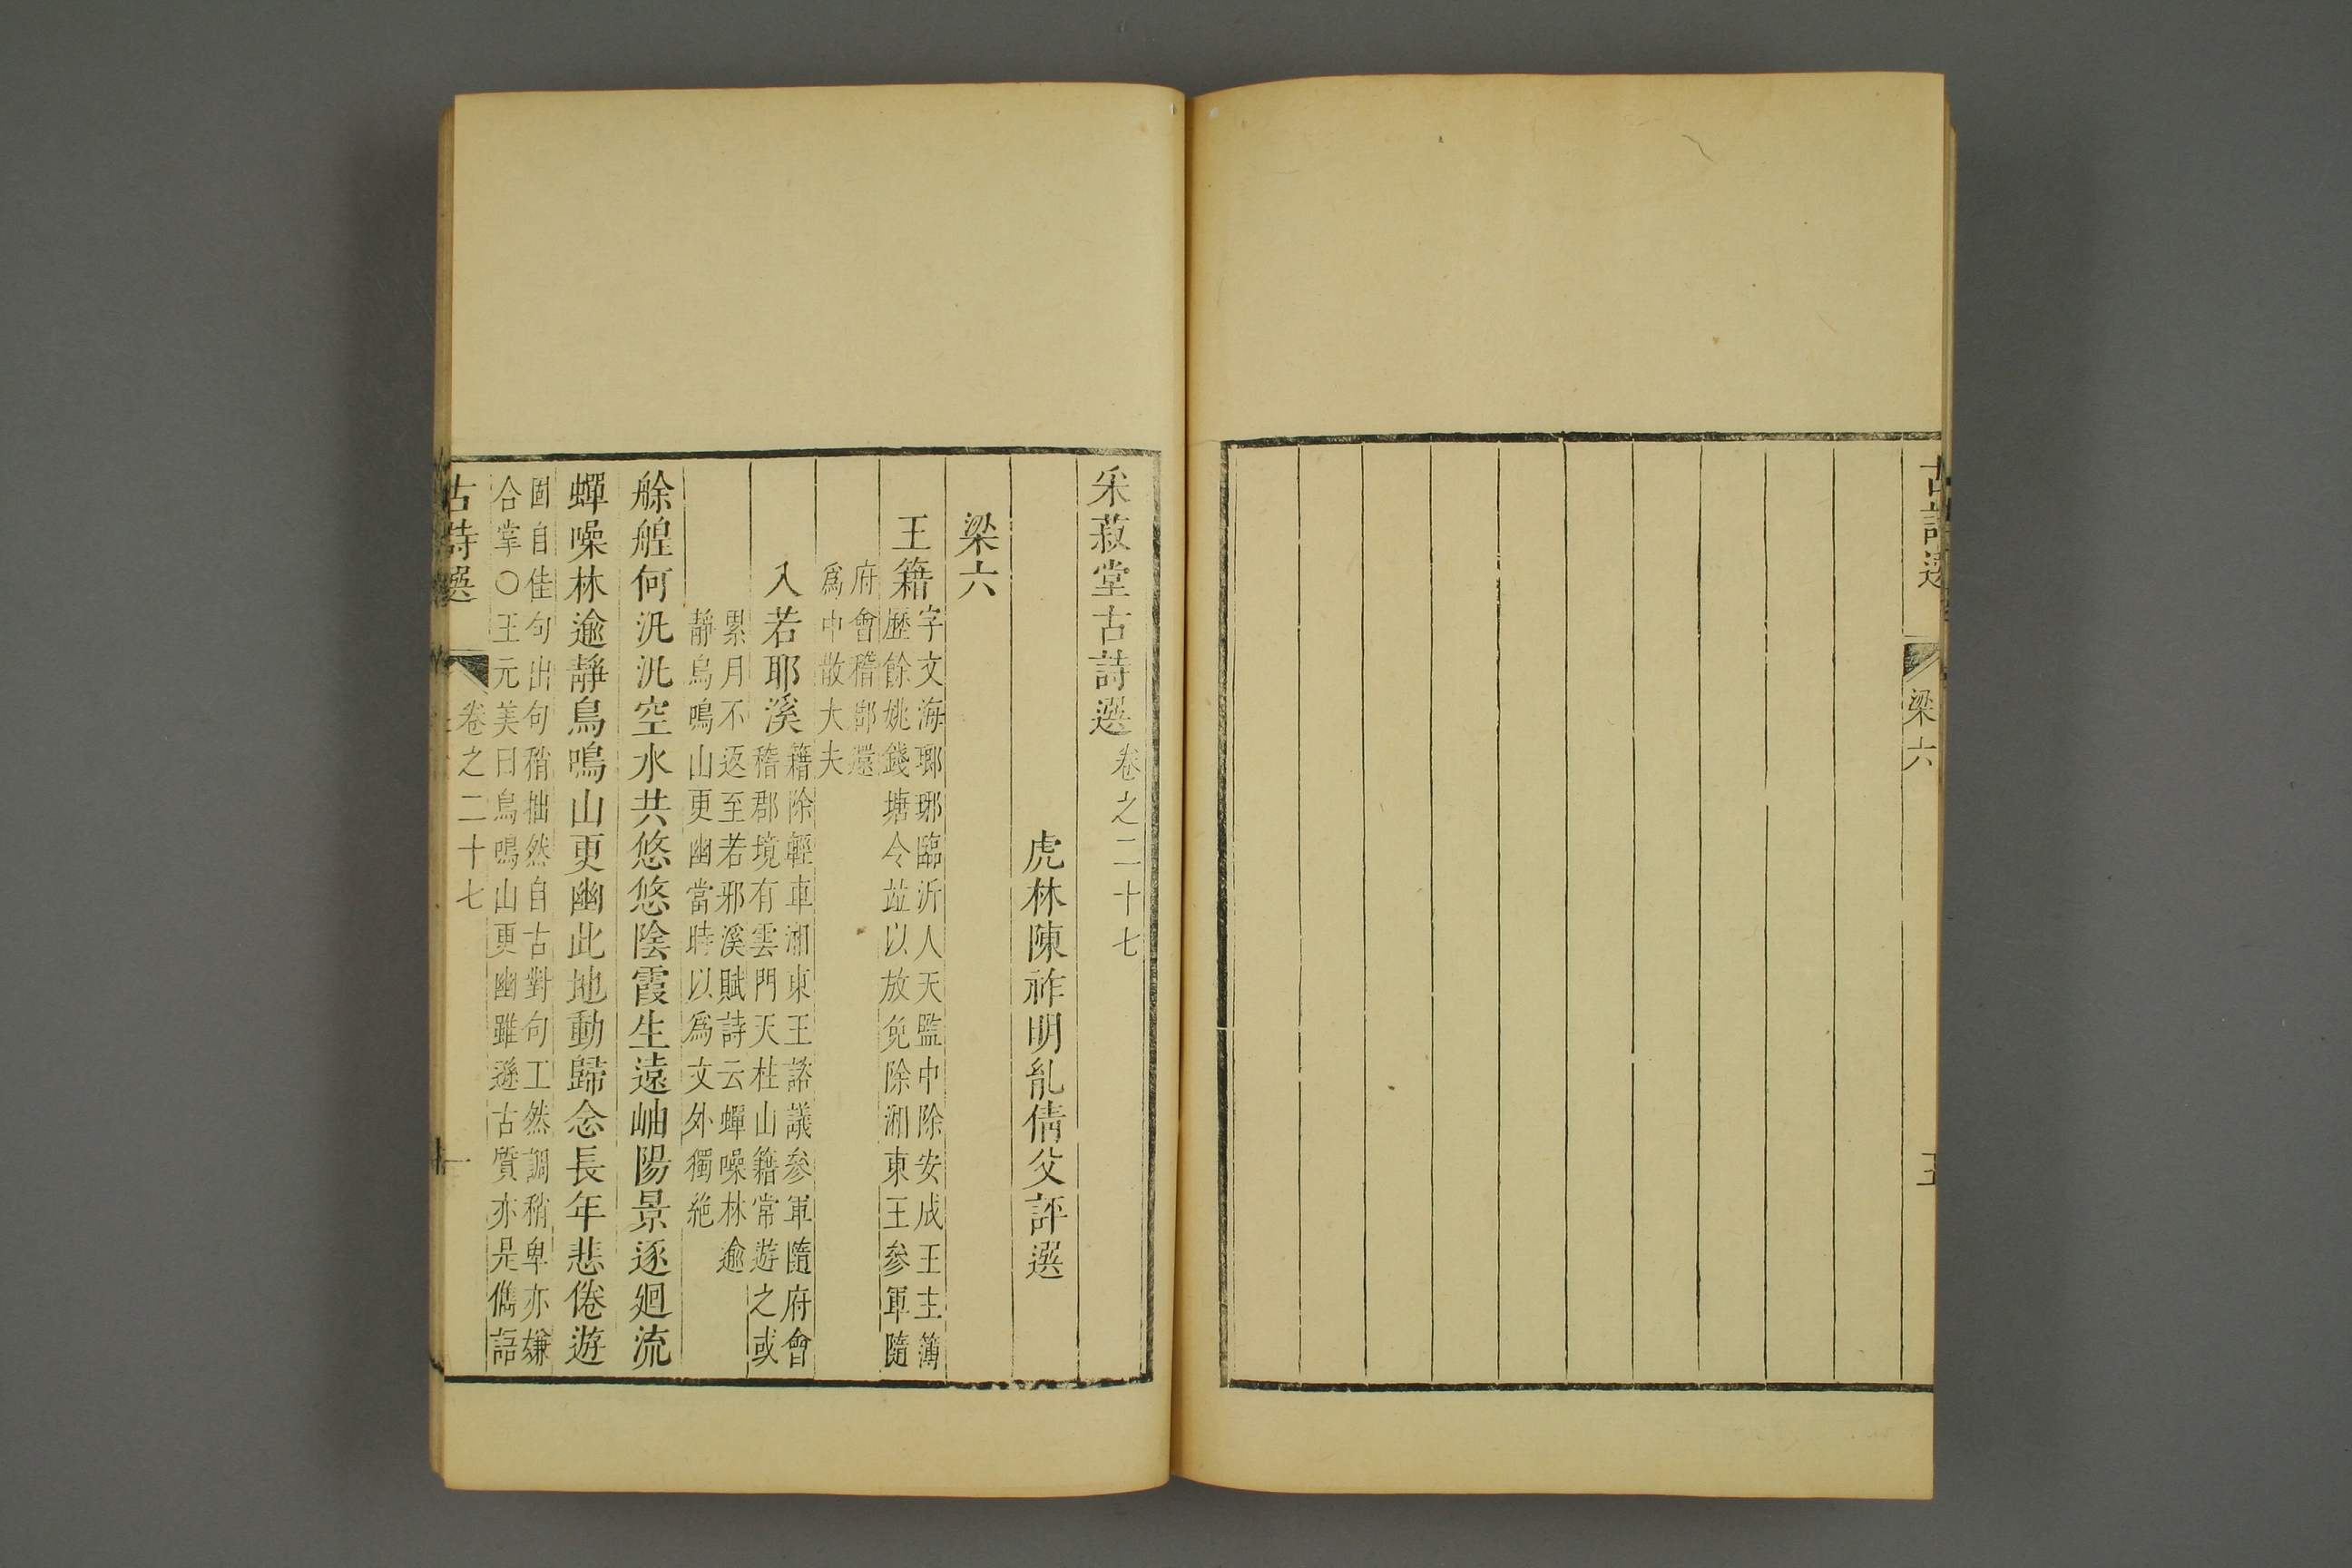 古詩選 梁六
采菽堂古詩選卷之二十七
虎林陳祚明胤倩父評選
梁六
王籍字文海瑯琊臨沂人天監中除安成王主簿
歷餘姚錢塘令竝以放免除湘東王參軍隨
府會稽郡還
爲中散大夫
入若耶溪籍除輕車湘東王諮議參軍隨府會
稽郡境有雲門天柱山籍常遊之或
累月不返至若邪溪賦詩云蟬噪林逾
靜鳥鳴山更幽當時以爲文外獨絶
艅艎何汎汎空水共悠悠陰霞生遠岫陽景逐廻流
蟬噪林逾靜鳥鳴山更幽此地動歸念長年悲倦遊
固自佳句出句稍拙然自古對句工然調稍卑亦嫌
合掌○王元美曰鳥鳴山更幽雖遜古質亦是儁語
古詩選 卷之二十七 一